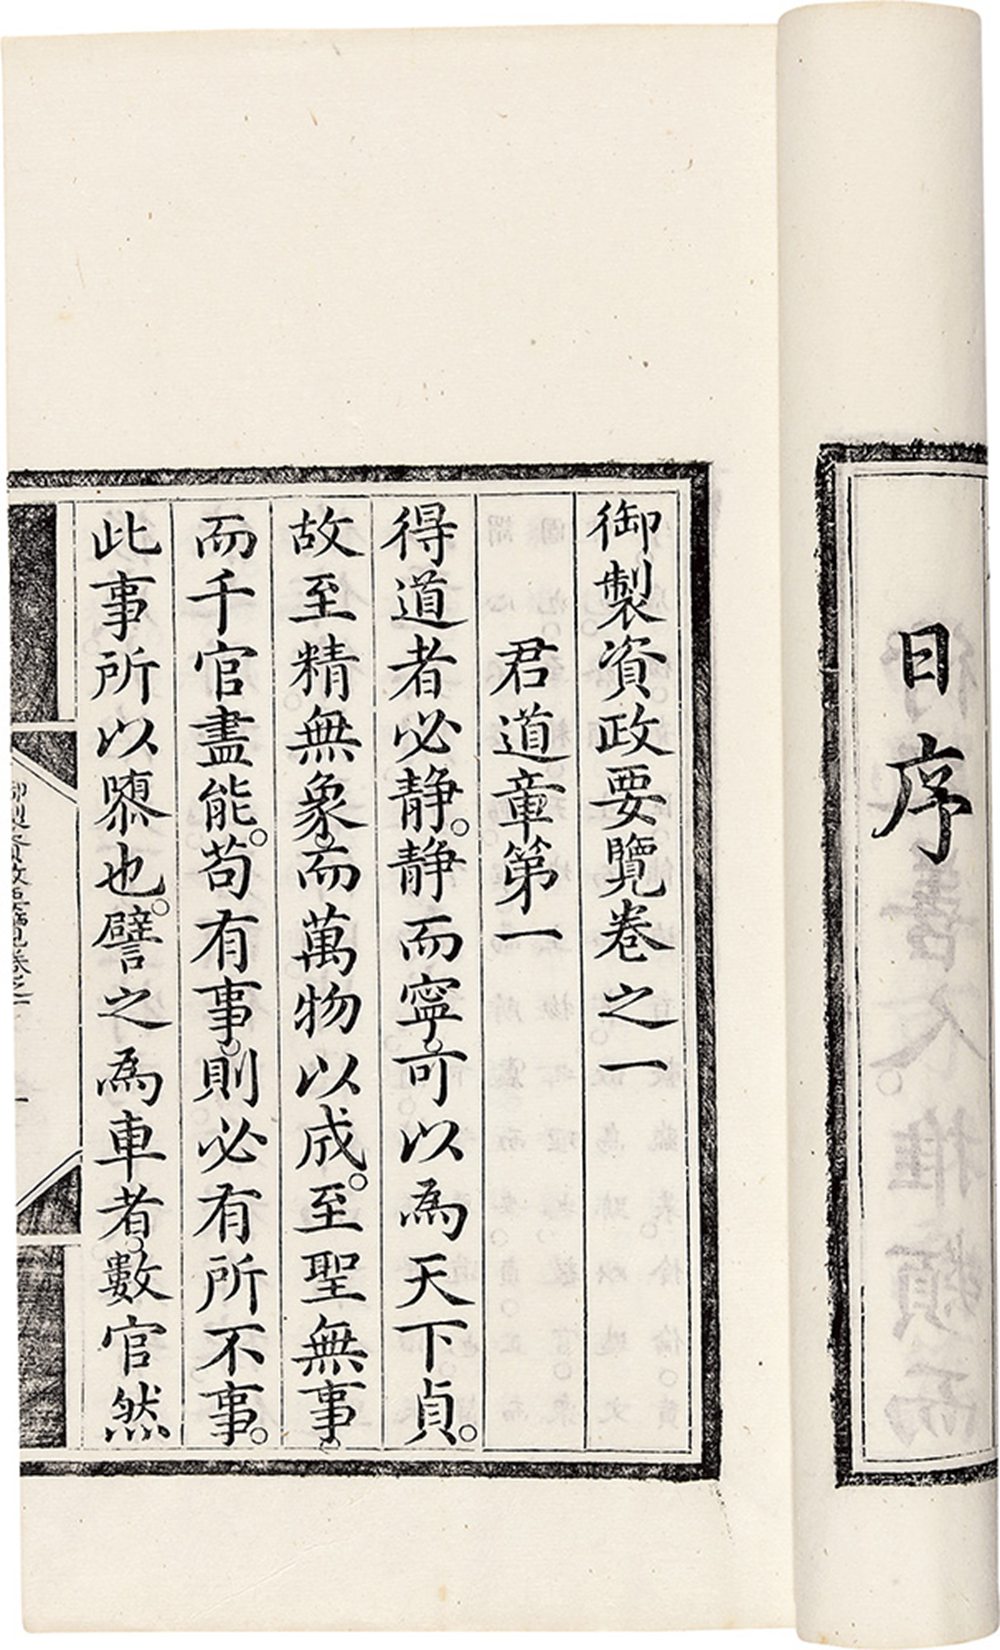 日序
御製資政要覽卷之一
君道章第一
得道者必静。静而寧。可以為天下貞。
故至精無象。而萬物以成。至聖無事。
而千官盡能。苟有事。則必有所不事。
此事所以隳也。譬之為車者。數官然